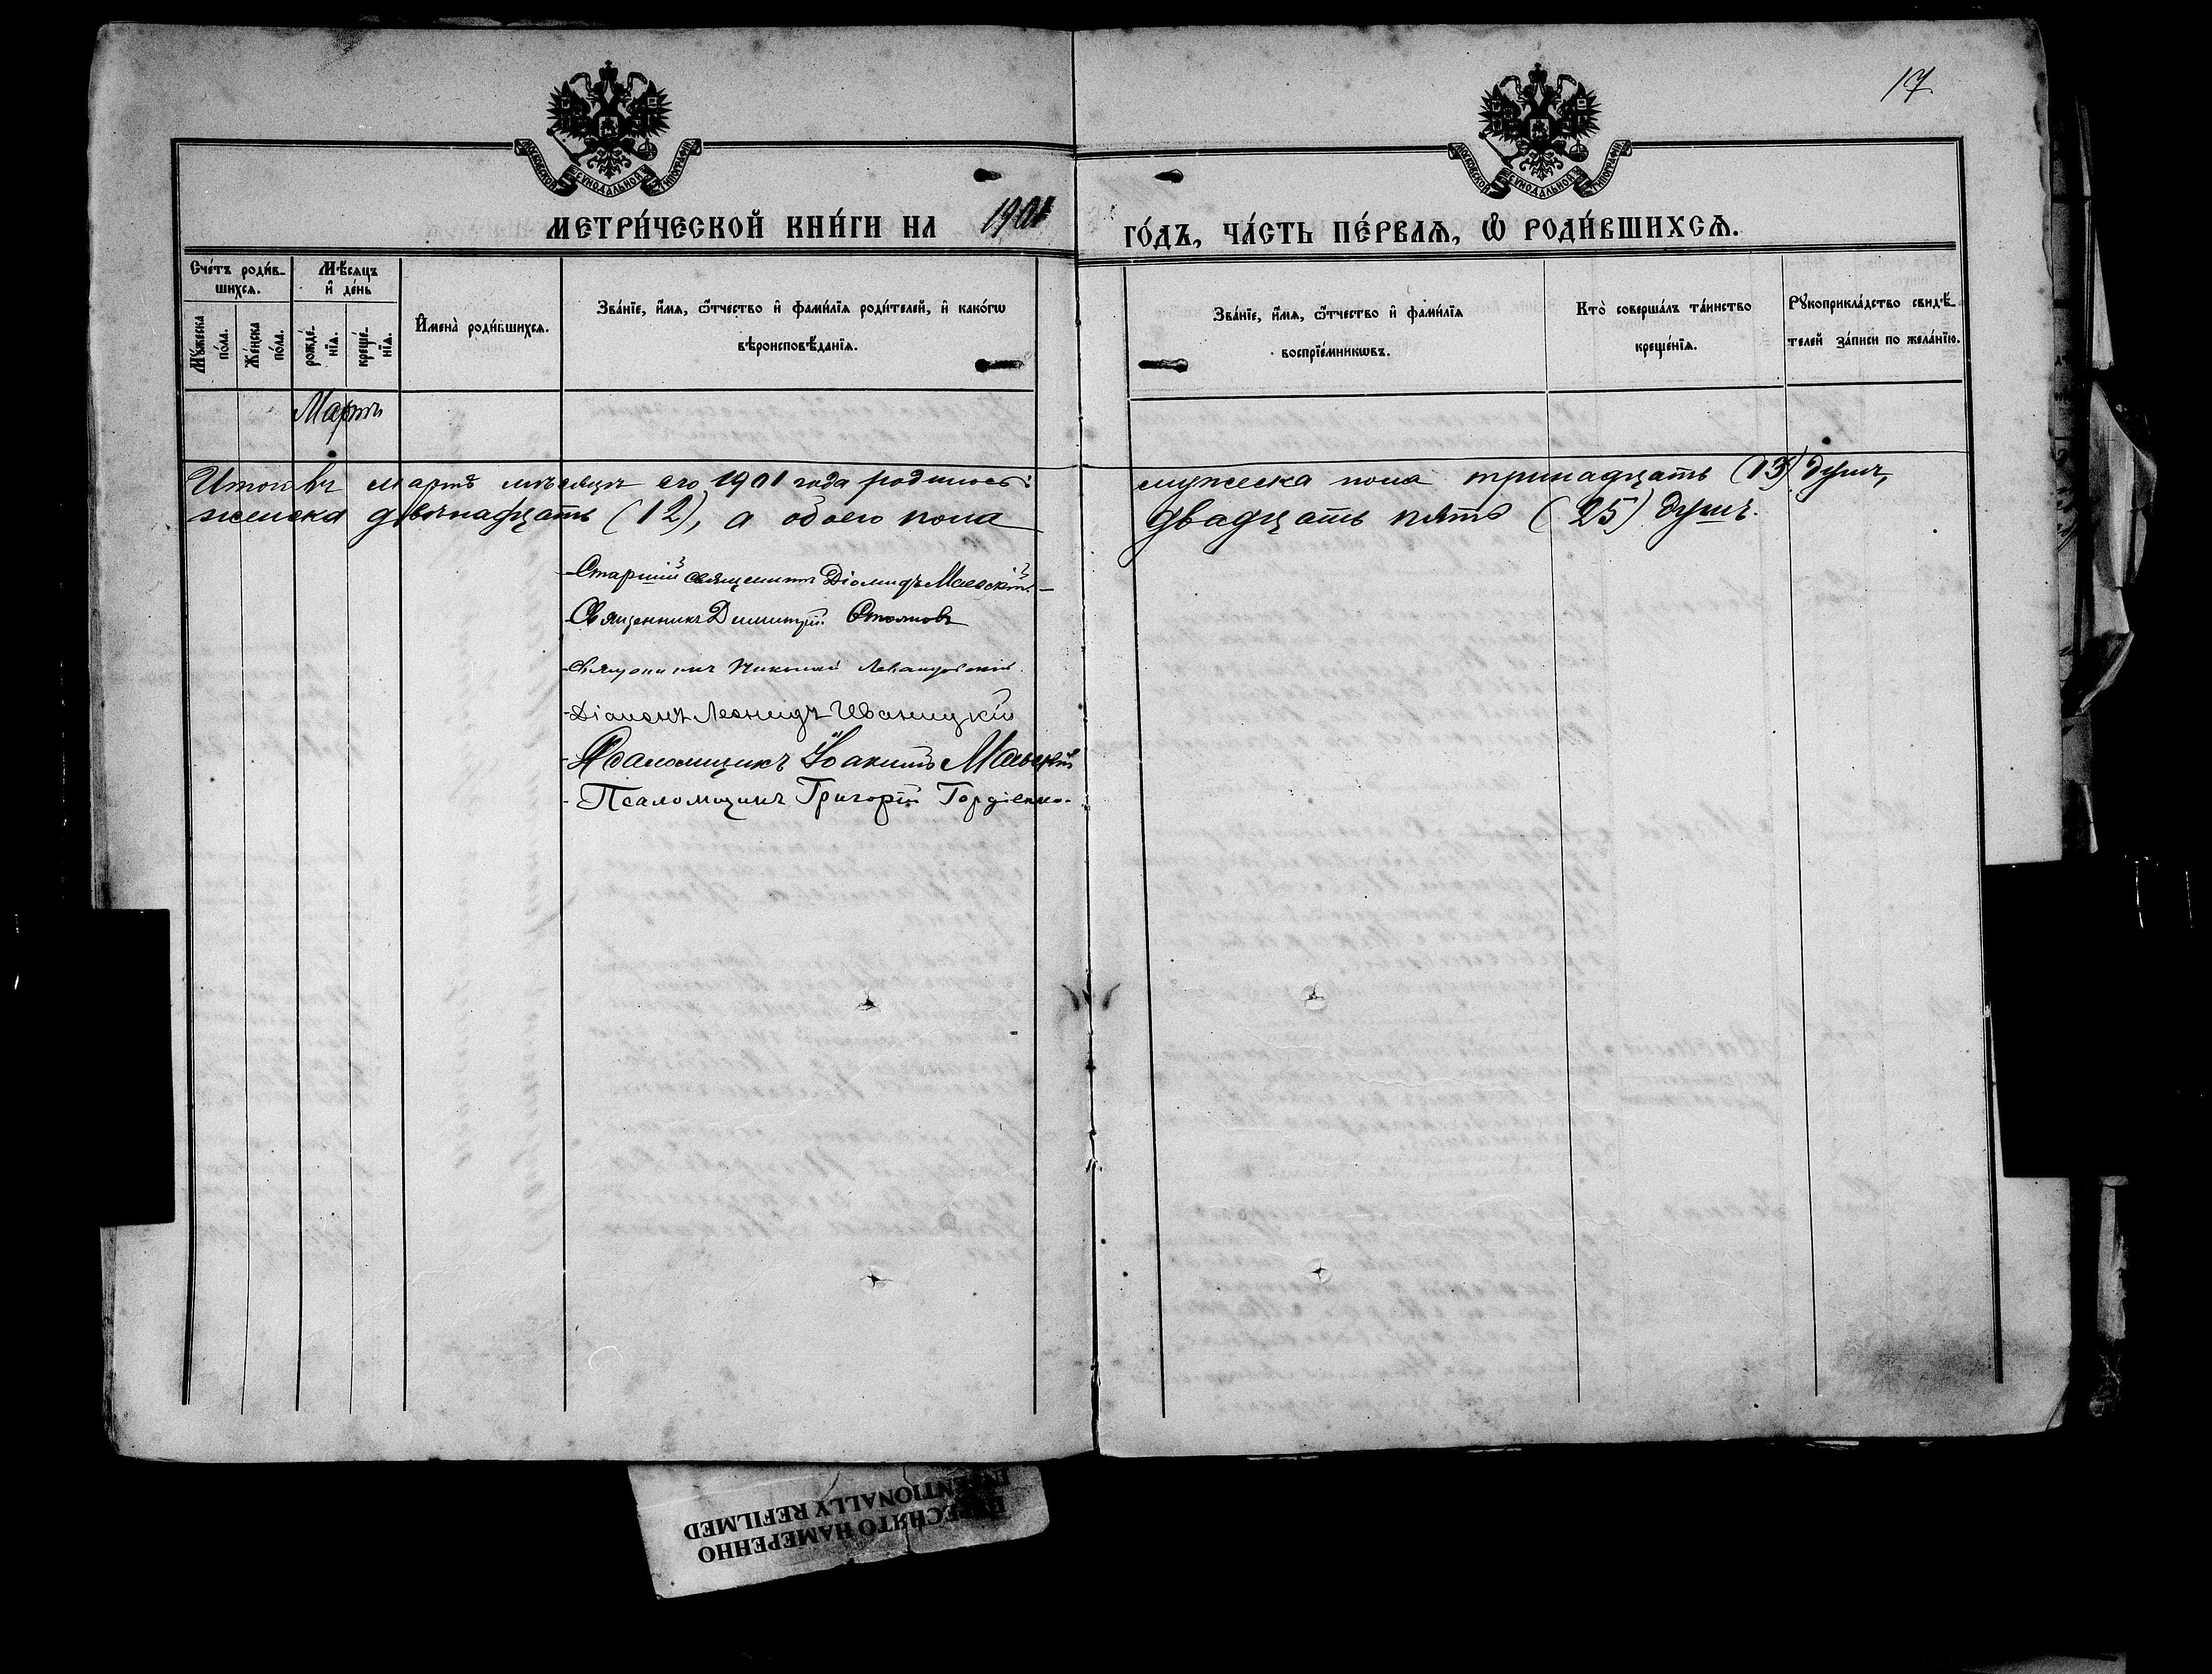 17
МОСКОВСКОЙ СѴНОДАЛЬНОЙ ТИПОГРАФІИ
МОСКОВСКОЙ СѴНОДАЛЬНОЙ ТИПОГРАФІИ
МЕТРИ́ЧЕСКОЙ КНИ́ГИ НА 1901 ГО́ДЪ, ЧА́СТЬ ПЕ́РВАѦ, Ѡ҆ РОДИ́ВШИХСѦ.
Сче́тъ роди́в-
шихсѧ.
Мꙋ́жеска
по́ла.
Же́нска
по́ла.
Мѣ́сѧцъ
и҆ де́нь
рожде́-
нїѧ.
креще́-
нїѧ.
И҆мена̀ роди́вшихсѧ.
Зва́нїе, и҆́мѧ, ѻ҆́тчество и҆ фами́лїѧ роди́телей, и҆ како́гѡ
вѣроисповѣ́данїѧ.
Зва́нїе, и҆́мѧ, ѻ҆́тчество и҆ фами́лїѧ
воспрїе́мникѡвъ.
Кто̀ соверша́лъ та́инство
креще́нїѧ.
Рꙋкоприкла́дство свидѣ́-
телей за́писи по жела́нїю.
Мартъ
Итого въ мартѣ мѣсяцѣ сего 1901 года родилось: мужеска пола тринадцать (13) душъ,
женска двѣнадцать (12), а обоего пола двадцать пять (25) душъ.
Старшій священникъ Діомидъ Маевскій.
Священникъ Димитрій
Священникъ Николай Левандовскій.
Діаконъ Леонидъ Иваницкій
Псаломщикъ Іоакимъ
Псаломщикъ Григорій Гордіенко.
ПЕРЕСНЯТО НАМЕРЕННО
INTENTIONALLY REFILMED